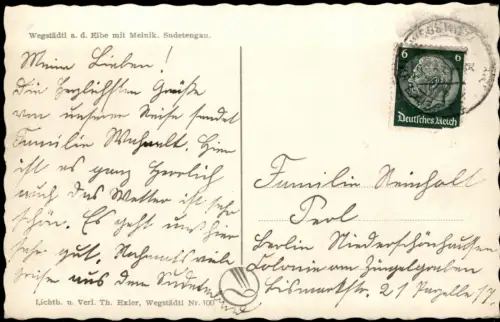 Wegstädtl a. d. Elbe mit Melnik. Sudetengau.
Meine Lieben!
Die herzlichsten Grüße
von unserer Reise sendet
Familie Hier
ist es ganz herrlich
auch das Wetter ist sehr
schön. Es geht uns hier
sehr gut. Nochmals viele
Grüße aus dem Sudetenland
6 6
Deutsches Reich
Familie Reinholt
Perl
Berlin Niederschönhausen
Colonie am Zingelgraben
Bismarkstr. 21 Parzelle 17.
Lichtb. u. Verl. Th. Exler, Wegstädtl Nr. 100